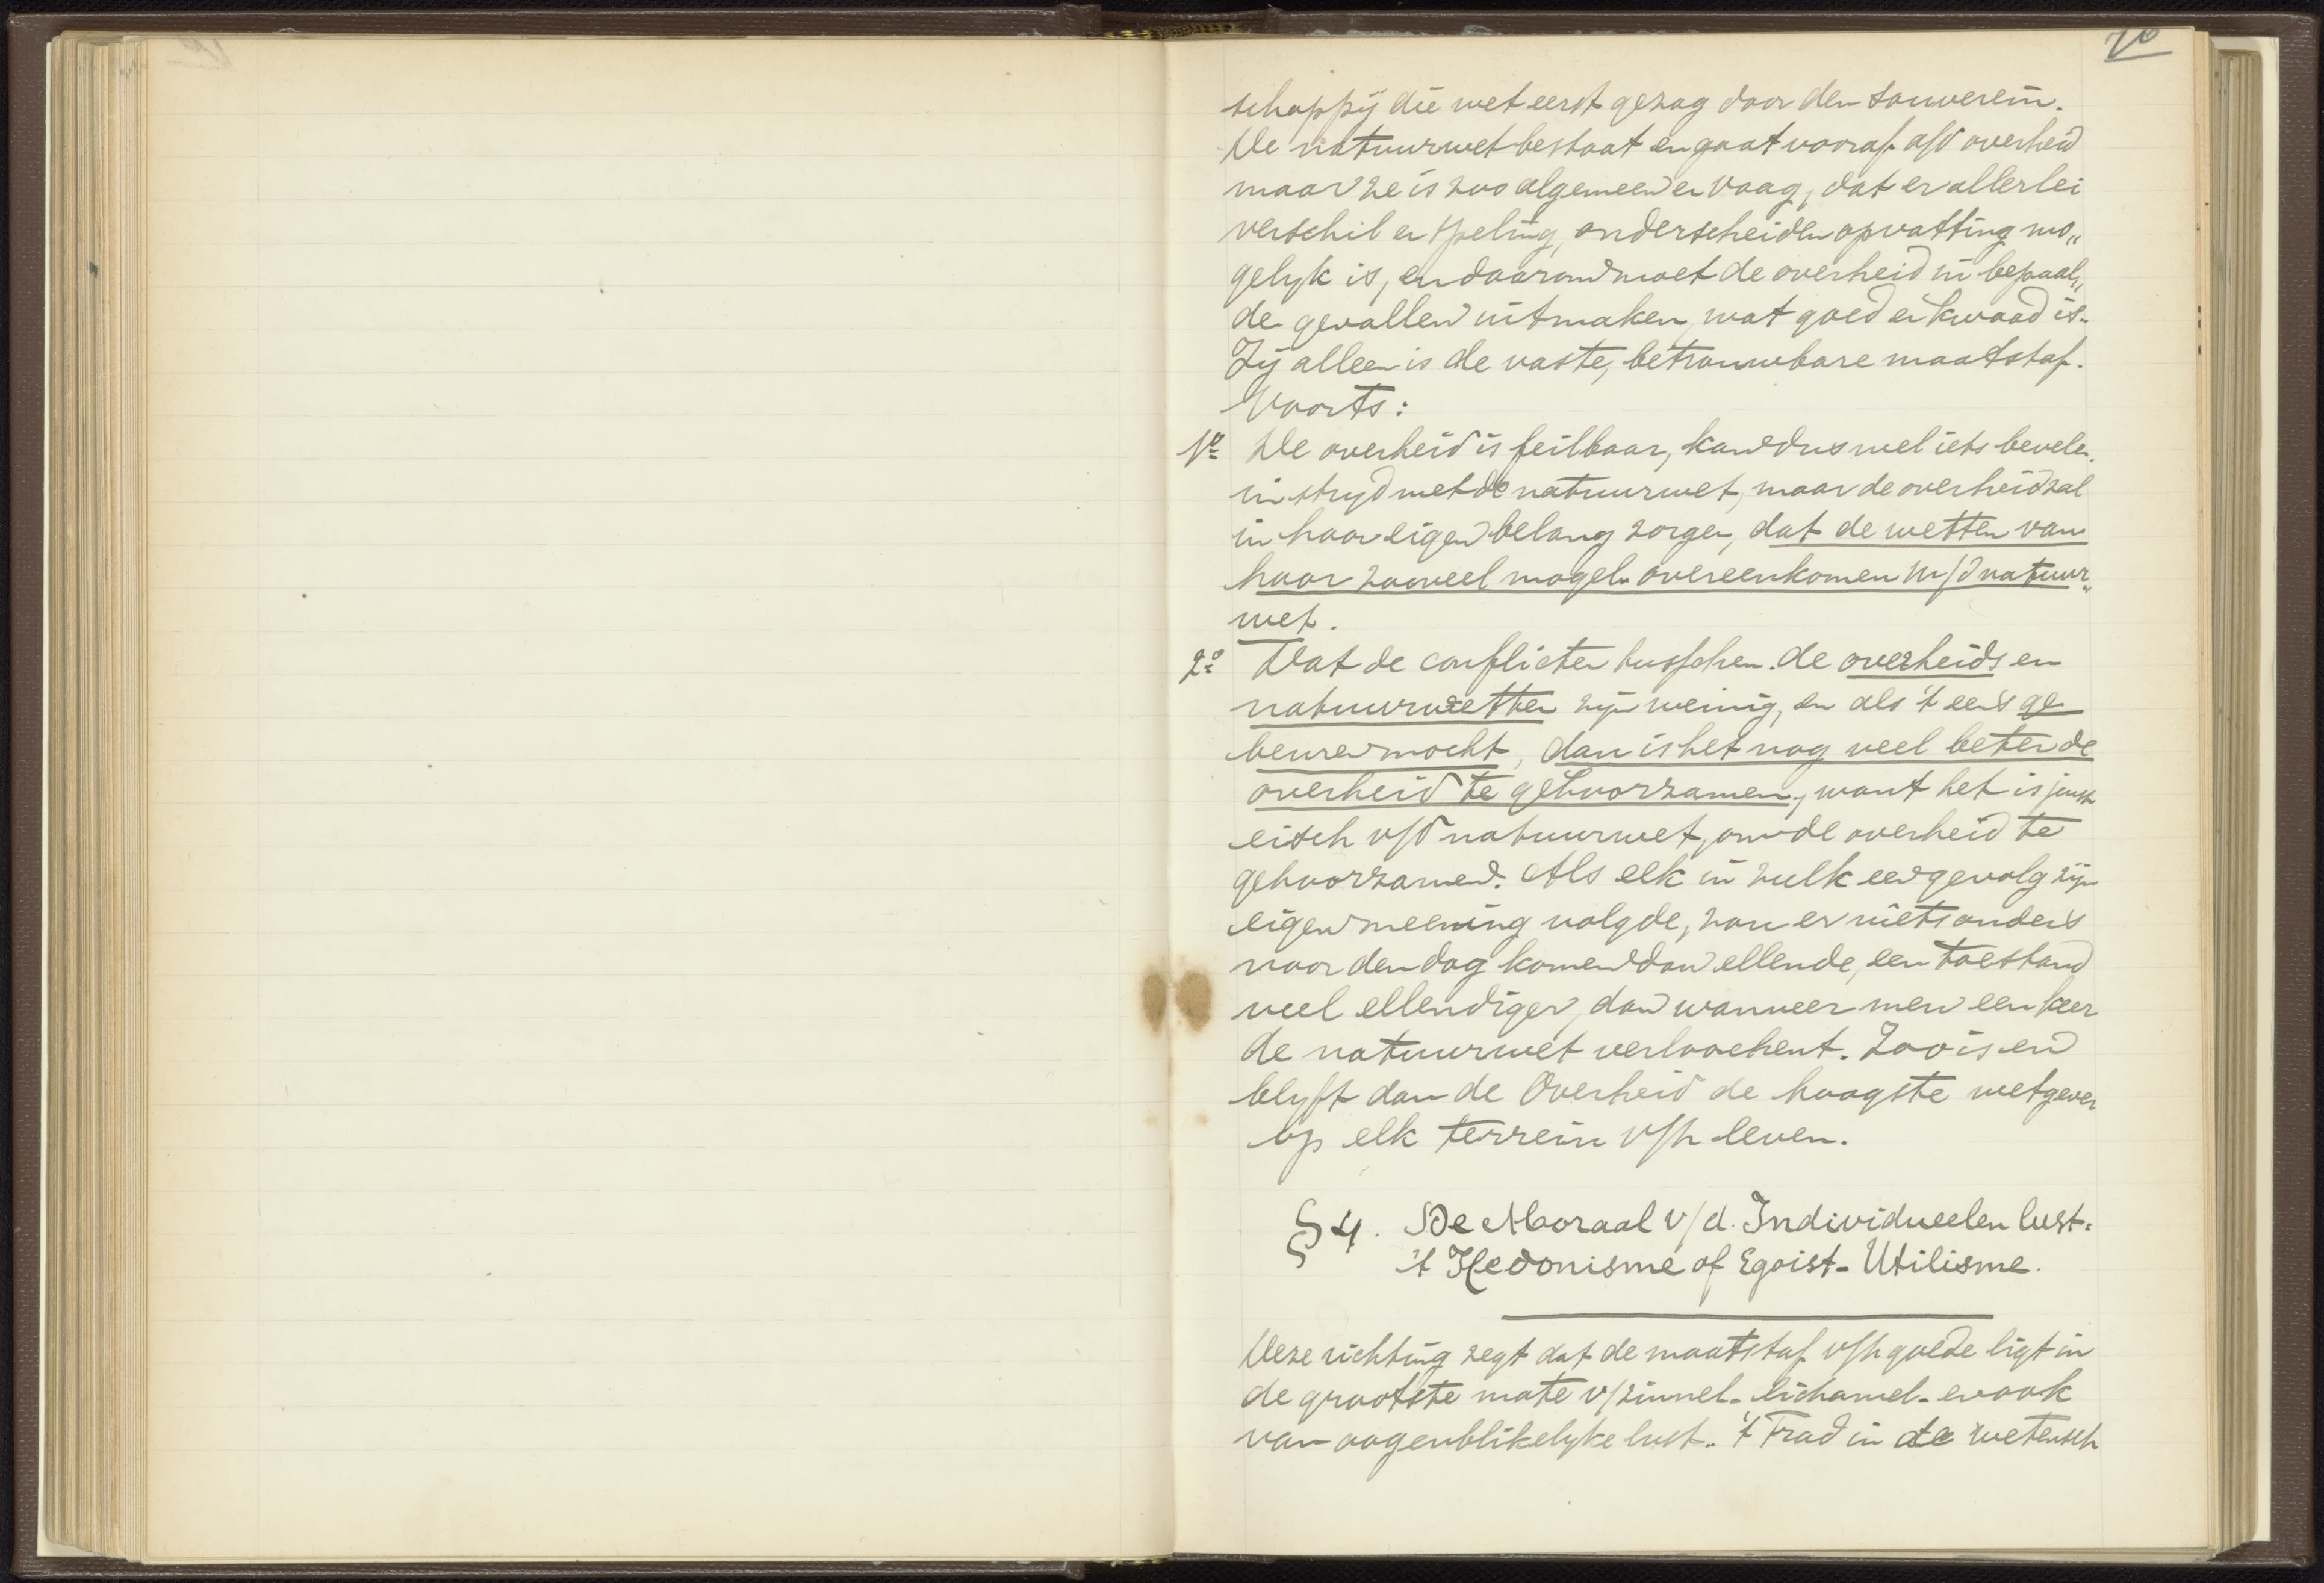 70
schappij die wet eerst gezag door den souverein.
De natuurwet bestaat en gaat vooraf a/d overheid
maar ze is zoo algemeen en vaag, dat er allerlei
verschil en speling, onderscheiden opvatting mo„
gelyk is, en daarom moet de overheid in bepaal„
de gevallen uitmaken, wat goed en kwaad is.
Zij alleen is de vaste, betrouwbare maatstaf.
Voorts:
1º De overheid is feilbaar, kan dus wel iets bevelen
in stryd met de natuurwet, maar de overheid zal
in haar eigen belang zorgen, dat de wetten van
haar zooveel mogel. overeenkomen m/d natuur„
wet.
2º Dat de conflicten tusschen de overheids en
natuurwetten zijn weinig, en als 't eens ge
beuren mocht, dan is het nog veel beter de
overheid te gehoorzamen, want het is juist
eisch v/d natuurwet, om de overheid te
gehoorzamen. Als elk in zulk een gevolg zijn
eigen meening volgde, zou er niets anders
voor den dag komen dan ellende, een toestand
veel ellendiger, dan wanneer men een keer
de natuurwet verloochent. Zoo is en
blyft dan de Overheid de hoogste wetgever
op elk terrein v/h leven.
§ 4. De Moraal v/d. Individueelen lust.
't Hedonisme of Egoist. Utilisme.
Deze richting zegt dat de maatstaf v/h goede ligt in
de grootste mate v/zinnel. lichamel. en ook
van oogenblikelyke lust. 't Trad in de wetensch